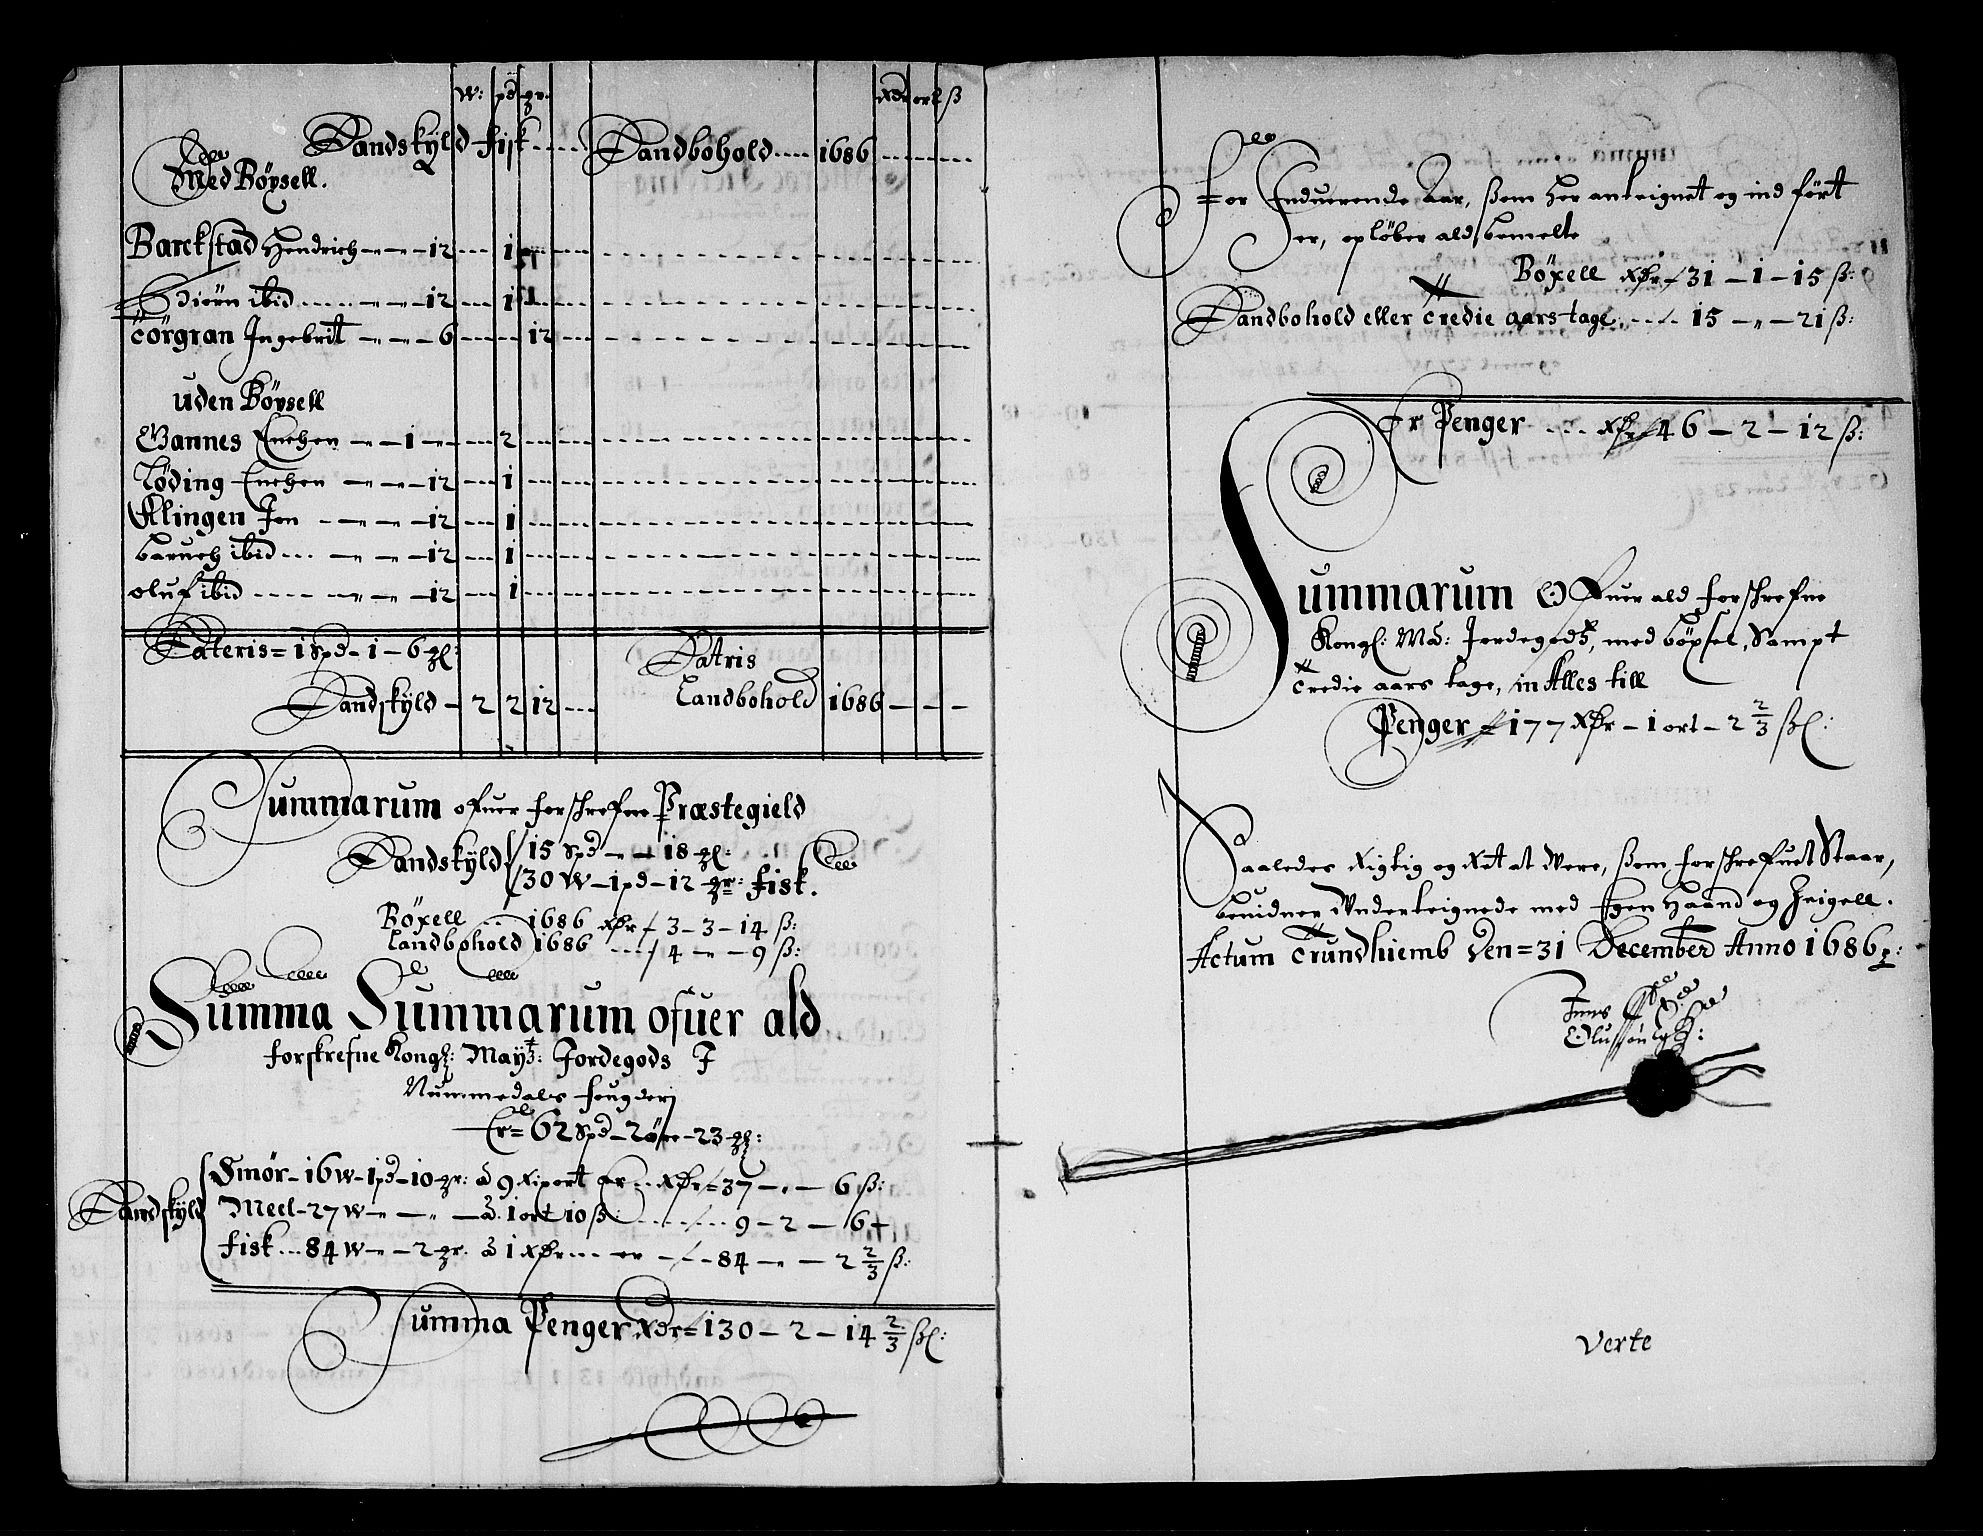 W: pd gr. Rdr ort ß
Landskÿld fisk ..... Landbohold .... 1686 ........
Med Böÿsell.
Barckstad Hendrich – „ – „ – 12 ---- 1
Biörn ibid ..... – „ – „ – 12 ---- 1
Törgran Ingebrit – „ – „ – 6 ------ 12
uden Böÿsell
Wannes Enchen – „ – 1 „ ---- 2
Löding Enchen – „ – „ – 12 --- 1
Klingen Jon – „ – „ – 12 --- 1
baruch ibid ... – „ – „ – 12 --- 1
oluf ibid .... – „ – „ – 12 --- 1
Lateris = 1 Spd – 1 – 6 gl:
Latris
Landskÿld – 2 2 12 --- Landbohold 1686 – – –
Summarum ofuer forschrefne Præstegield
Landskÿld 15 Spd – „ – 18 gl:
30 W – 1 pd – 12 gr: fisk.
Böxell ... 1686 Rdr – 3 – 3 – 14 ß:
Landbohold 1686 ... 4 – „ – 9 ß:
Summa Summarum ofuer ald
forskrefne Kongl: Maÿtz: Jordegods I
Nummedals fougderj
Er = 62 Spd – 2 öre – 23 gl:
Smör – 16 W – 1 pd – 10 gr: à 9 Rixort er ... Rdr = 37 – „ – 6 ß:
Landskÿld Meel – 27 W – „ – „ – à 1 ort 10 ß: ........ 9 – 2 – 6 +
fisk ... 84 W – „ – 2 gr. à 1 Rdr ... er – – 84 – „ – 2 2/3 ß:
Summa Penger Rdr = 130 – 2 – 14 2/3 ßl:
For Induerende Aar, ßom her anteignet og ind fört
er, opløber ald bemelte
Böxell Rdr 31 – 1 – 15 ß:
Landbohold eller Tredie aars tage .... 15 – „ – 21 ß:
Er Penger .... Rdr 46 – 2 – 12 ß:
Summarum Ofuer ald forschrefne
Kongl: Ma: Jordegodtz, med böxsel, Sampt
Tredie aars tage, in Alles till
Penger = 177 Rdr – 1 ort – 2 2/3 ßl:
Saaledes Rigtig og Ret at Were, ßom forschrefuet Staar,
beuidner Underteignede med Egen Haand og Zeigell.
Actum Trundhiemb Den = 31 December Anno 1686
Verte